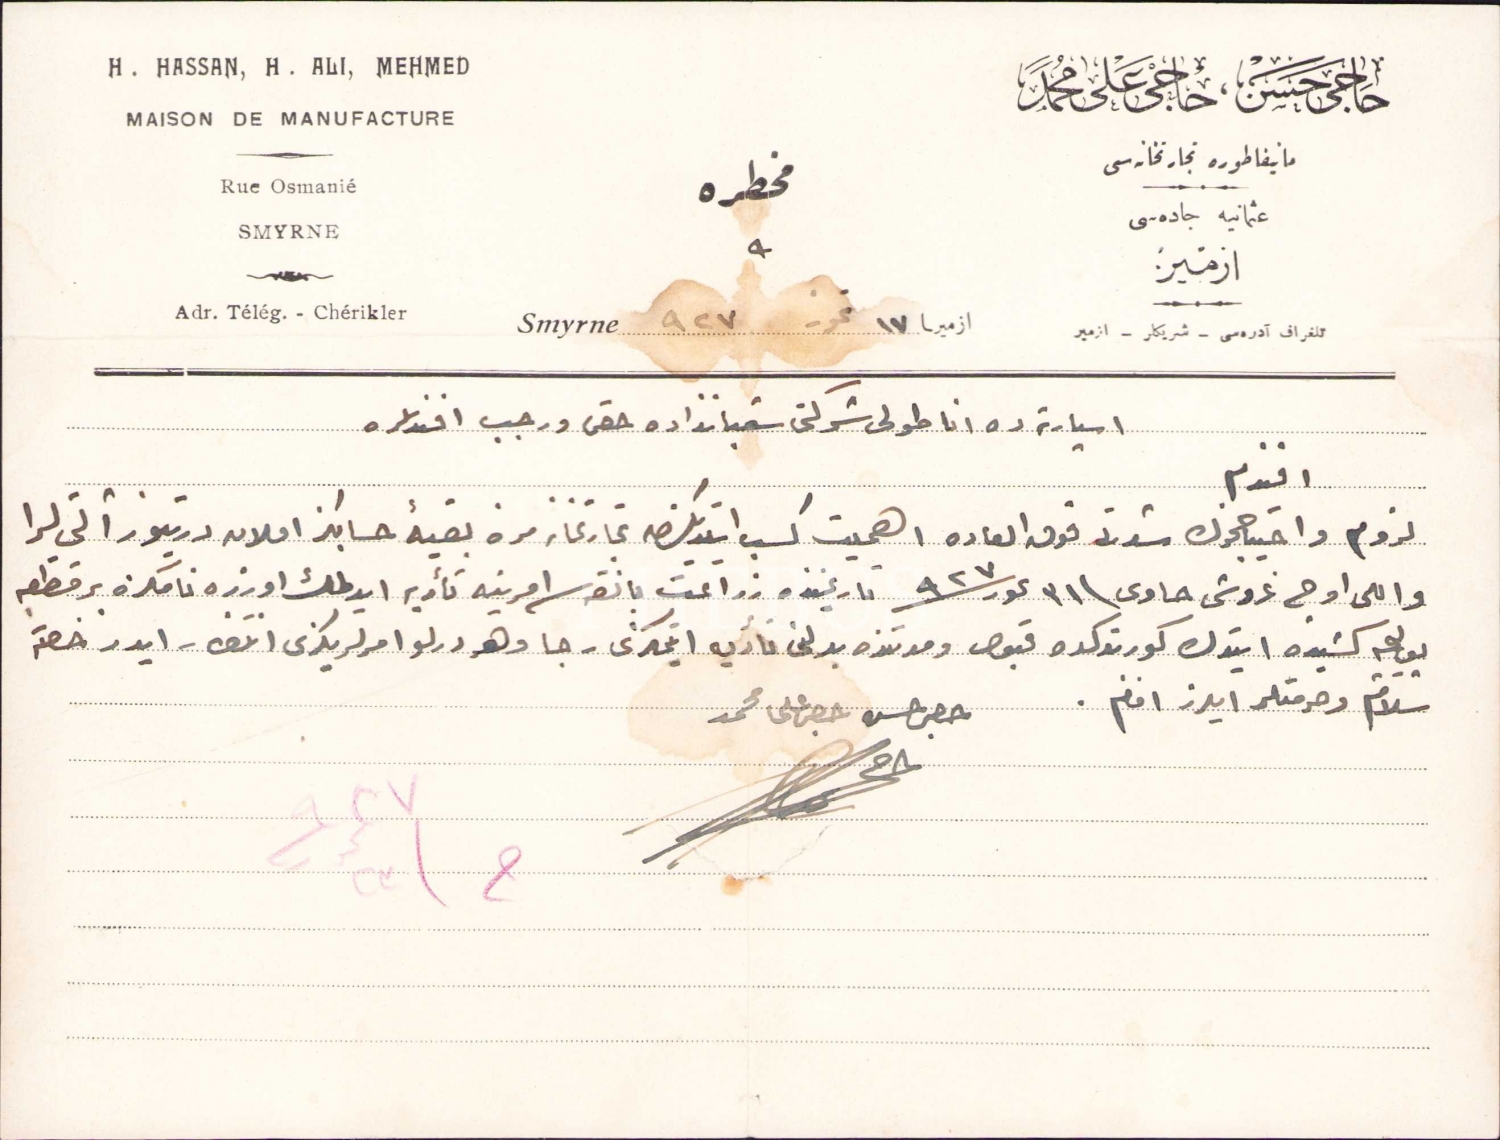 H. HASSAN, H. ALI, MEHMED
MAISON DE MANUFACTURE
Rue Osmanié
SMYRNE
Adr. Télég. - Chérikler
حاجی حسن، حاجی علی محمد
مانيفاطوره تجارتخانه‌سی
عثمانیه جاده‌سی
ازمیر
تلغراف آدره‌سی - شریکلر - ازمیر
مخطره
٩
Smyrne ازمیر ١٧ تموز ٩٢٧
اسپارته ده اناطولی شركتی حقی و رجب افندیلره
افندم
لزوم و احتیاجمزك شدتی فوق العاده اهمیت كسب ایتدیكندن تجارتخانه مزه بقیهٔ حسابكز اولان درتیوز آلتی لیرا
واللی اوچ غروشی حاوی ٣١ تموز ٩٢٧ تاریخنده زراعت بانقه سی امرینه تأدیه ایدیلمك اوزره نامكزه بر قطعه
پولیچه كشیده ایتدك كورلدكده قبول و مدتنده بدلنی تأدیه ایتمكزی رجا و هر درلو امرلریكزی انتظار ایدر
سلام و حرمتلر ایدرز افندم .
حجی حسن حجی علی محمد
٩٢٧